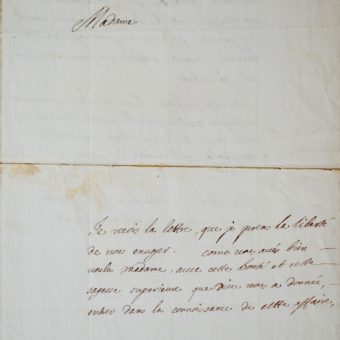 Madame
Je reçois la lettre, que je prens la liberté
de vous envoyer. come vous avés bien
voulu madame, avec cette bonté et cette
sagesse superieure que Dieu vous a donnée,
entrer dans la connoissance de cette affaire,